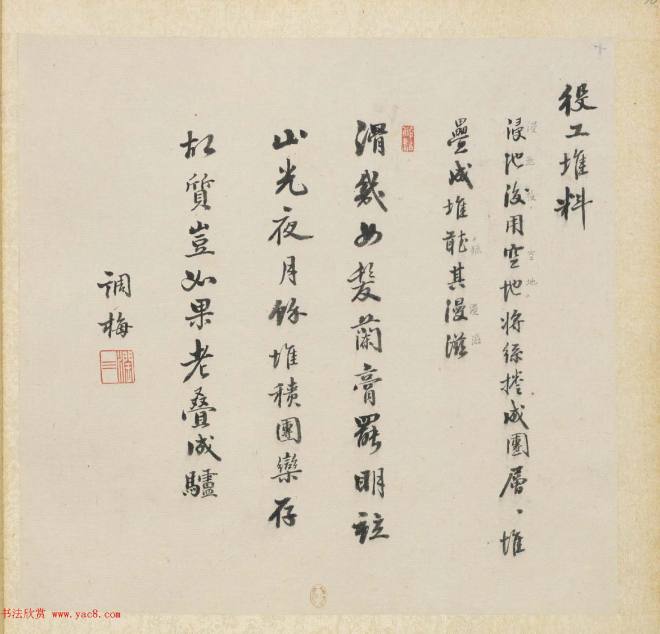 役工堆料
浸池後用空地將絲捲成團層、堆
疊成堆其漫滋
滑如髮蘭膏罷明
山光夜月堆積團欒存
故質豈如果老叠成驢
調梅
书法欣赏 www.yac8.com